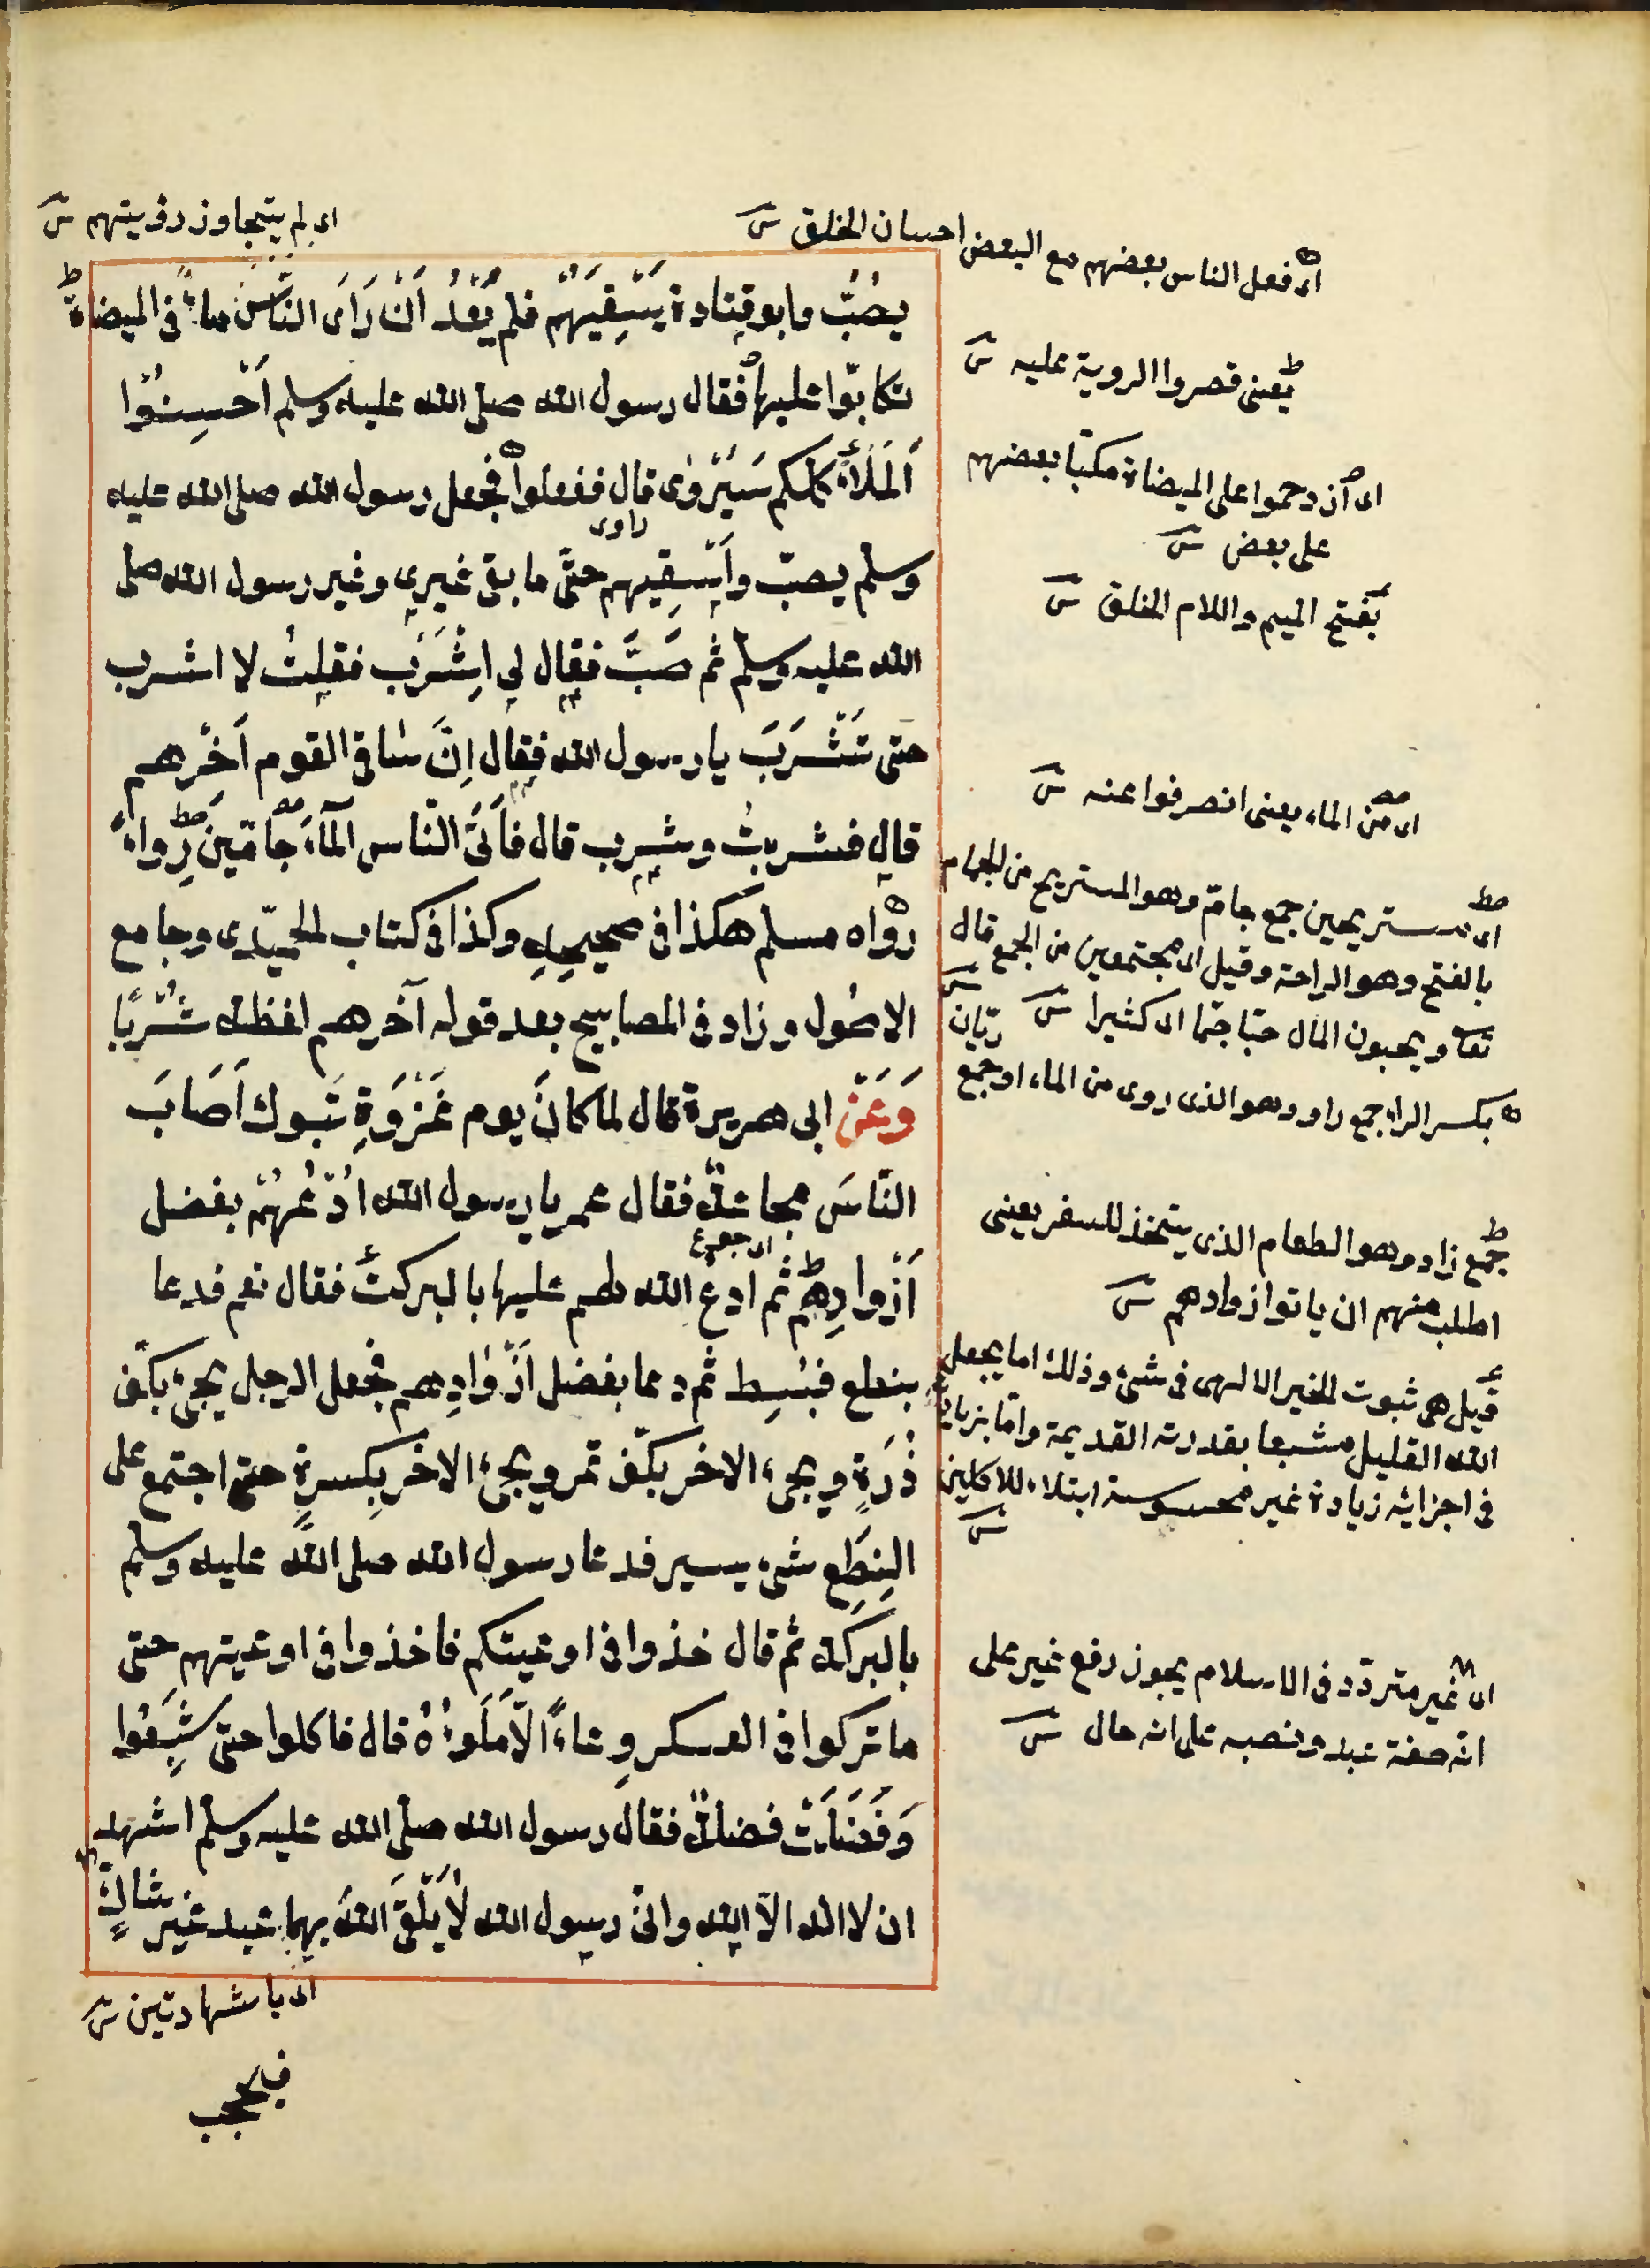 اى لم يتجاوز رؤيتهم ش
اى فعل الناس بعضهم مع البعض احسان الخلق ش
يصُبُّ وابو قتادة يَسْقِيَهُمْ فلم يَعْدُ اَنْ رَاَى النَّاسُ ماءً فى الميضاة
تكابّوا عليها فقال رسول الله صلى الله عليه وسلم اَحْسِنُوا
اَلمَلَأَ كلكم سَيَرْوٰى قال ففعلوا فجعل رسول الله صلى الله عليه
راوى
وسلم يصبّ واَسْقِيهم حتَّى ما بقى غيرى وغير رسول الله صلى
الله عليه وسلم ثم صَبَّ فقال لى اِشْرَب فقلتُ لا اشرب
حتى تَشْرَبَ يا رسول الله فقال اِنَّ ساقى القوم آخِرهم
قال فشربتُ وشرب قال فاَتَى النَّاس الْمَآءَ جَامِّينَ رِوَاءً
رواه مسلم هكذا فى صحيحِهِ وكذا فى كتاب الحميدى وجامع
الاصُول وزاد فى المصابيح بعد قوله آخرهم لفظة شُرْبًا
وَعَنْ ابى هريرة قال لما كانَ يوم غَزْوَةِ تَبوك اَصَابَ
النَّاسَ مجاعةٌ فقال عمر يا رسول الله اُدْعُهُمْ بفضل
اى جوع
اَزْوادِهِم ثم ادعُ الله لهم عليها بالبركت فقال نعم فدعا
بنطع فبُسِط ثم دعا بفضل اَزْوَادِهم فجعل الرجل يجئ بكف
ذُرَةٍ ويجىء الاخر بكف تمر ويجئ الاخر بكِسرةٍ حتى اجتمع على
النِطَعِ شىء يسير فدعا رسول الله صلى الله عليه وسلم
بالبَركة ثم قال خذوا فى اوعيتكم فاخذوا فى اوعيتهم حتى
ما تركوا فى العسكر وِعاءً الَّا مَلَوءُهُ قال فاكلوا حتى شَبِعُوا
وَفَضَلَتْ فضلةٌ فقال رسول الله صلى الله عليه وسلم اشهد
ان لا اله الا الله وانى رسول الله لا يَلْقَى اللهَ بهما عبد غير شاكٍّ
يعنى قصروا الروية عليه ش
اى ازدحموا على الميضاة مكبّا بعضهم
على بعض ش
بفتح الميم واللام الخلق ش
اى من الماء يعنى انصرفوا عنه ش
اى مستريحين جمع جامّ وهو المستريح من الجمام
بالفتح وهو الراحة وقيل اى مجتمعين من الجمع قال
تعا ويحبون المال حبّا جمّا اى كثيرا ش ريّان
بكسر الراء جمع راو وهو الذى روى من الماء او جمع
ش
جمع زاد وهو الطعام الذى يتخذ للسفر يعنى
اطلب منهم ان ياتوا ازوادهم ش
قيل هى ثبوت الخير الالهى فى شىء وذلك اما يجعل
الله القليل مشبعا بقدرته القديمة واما بزيادة
فى اجزائه زيادة غير محسوسة ابتلاء للاكلين
ش
اى غير متردّد فى الاسلام يجوز رفع غير على
انه صفة عبد ونصبه على انه حال ش
اى باشهادتين ش
فيحجب